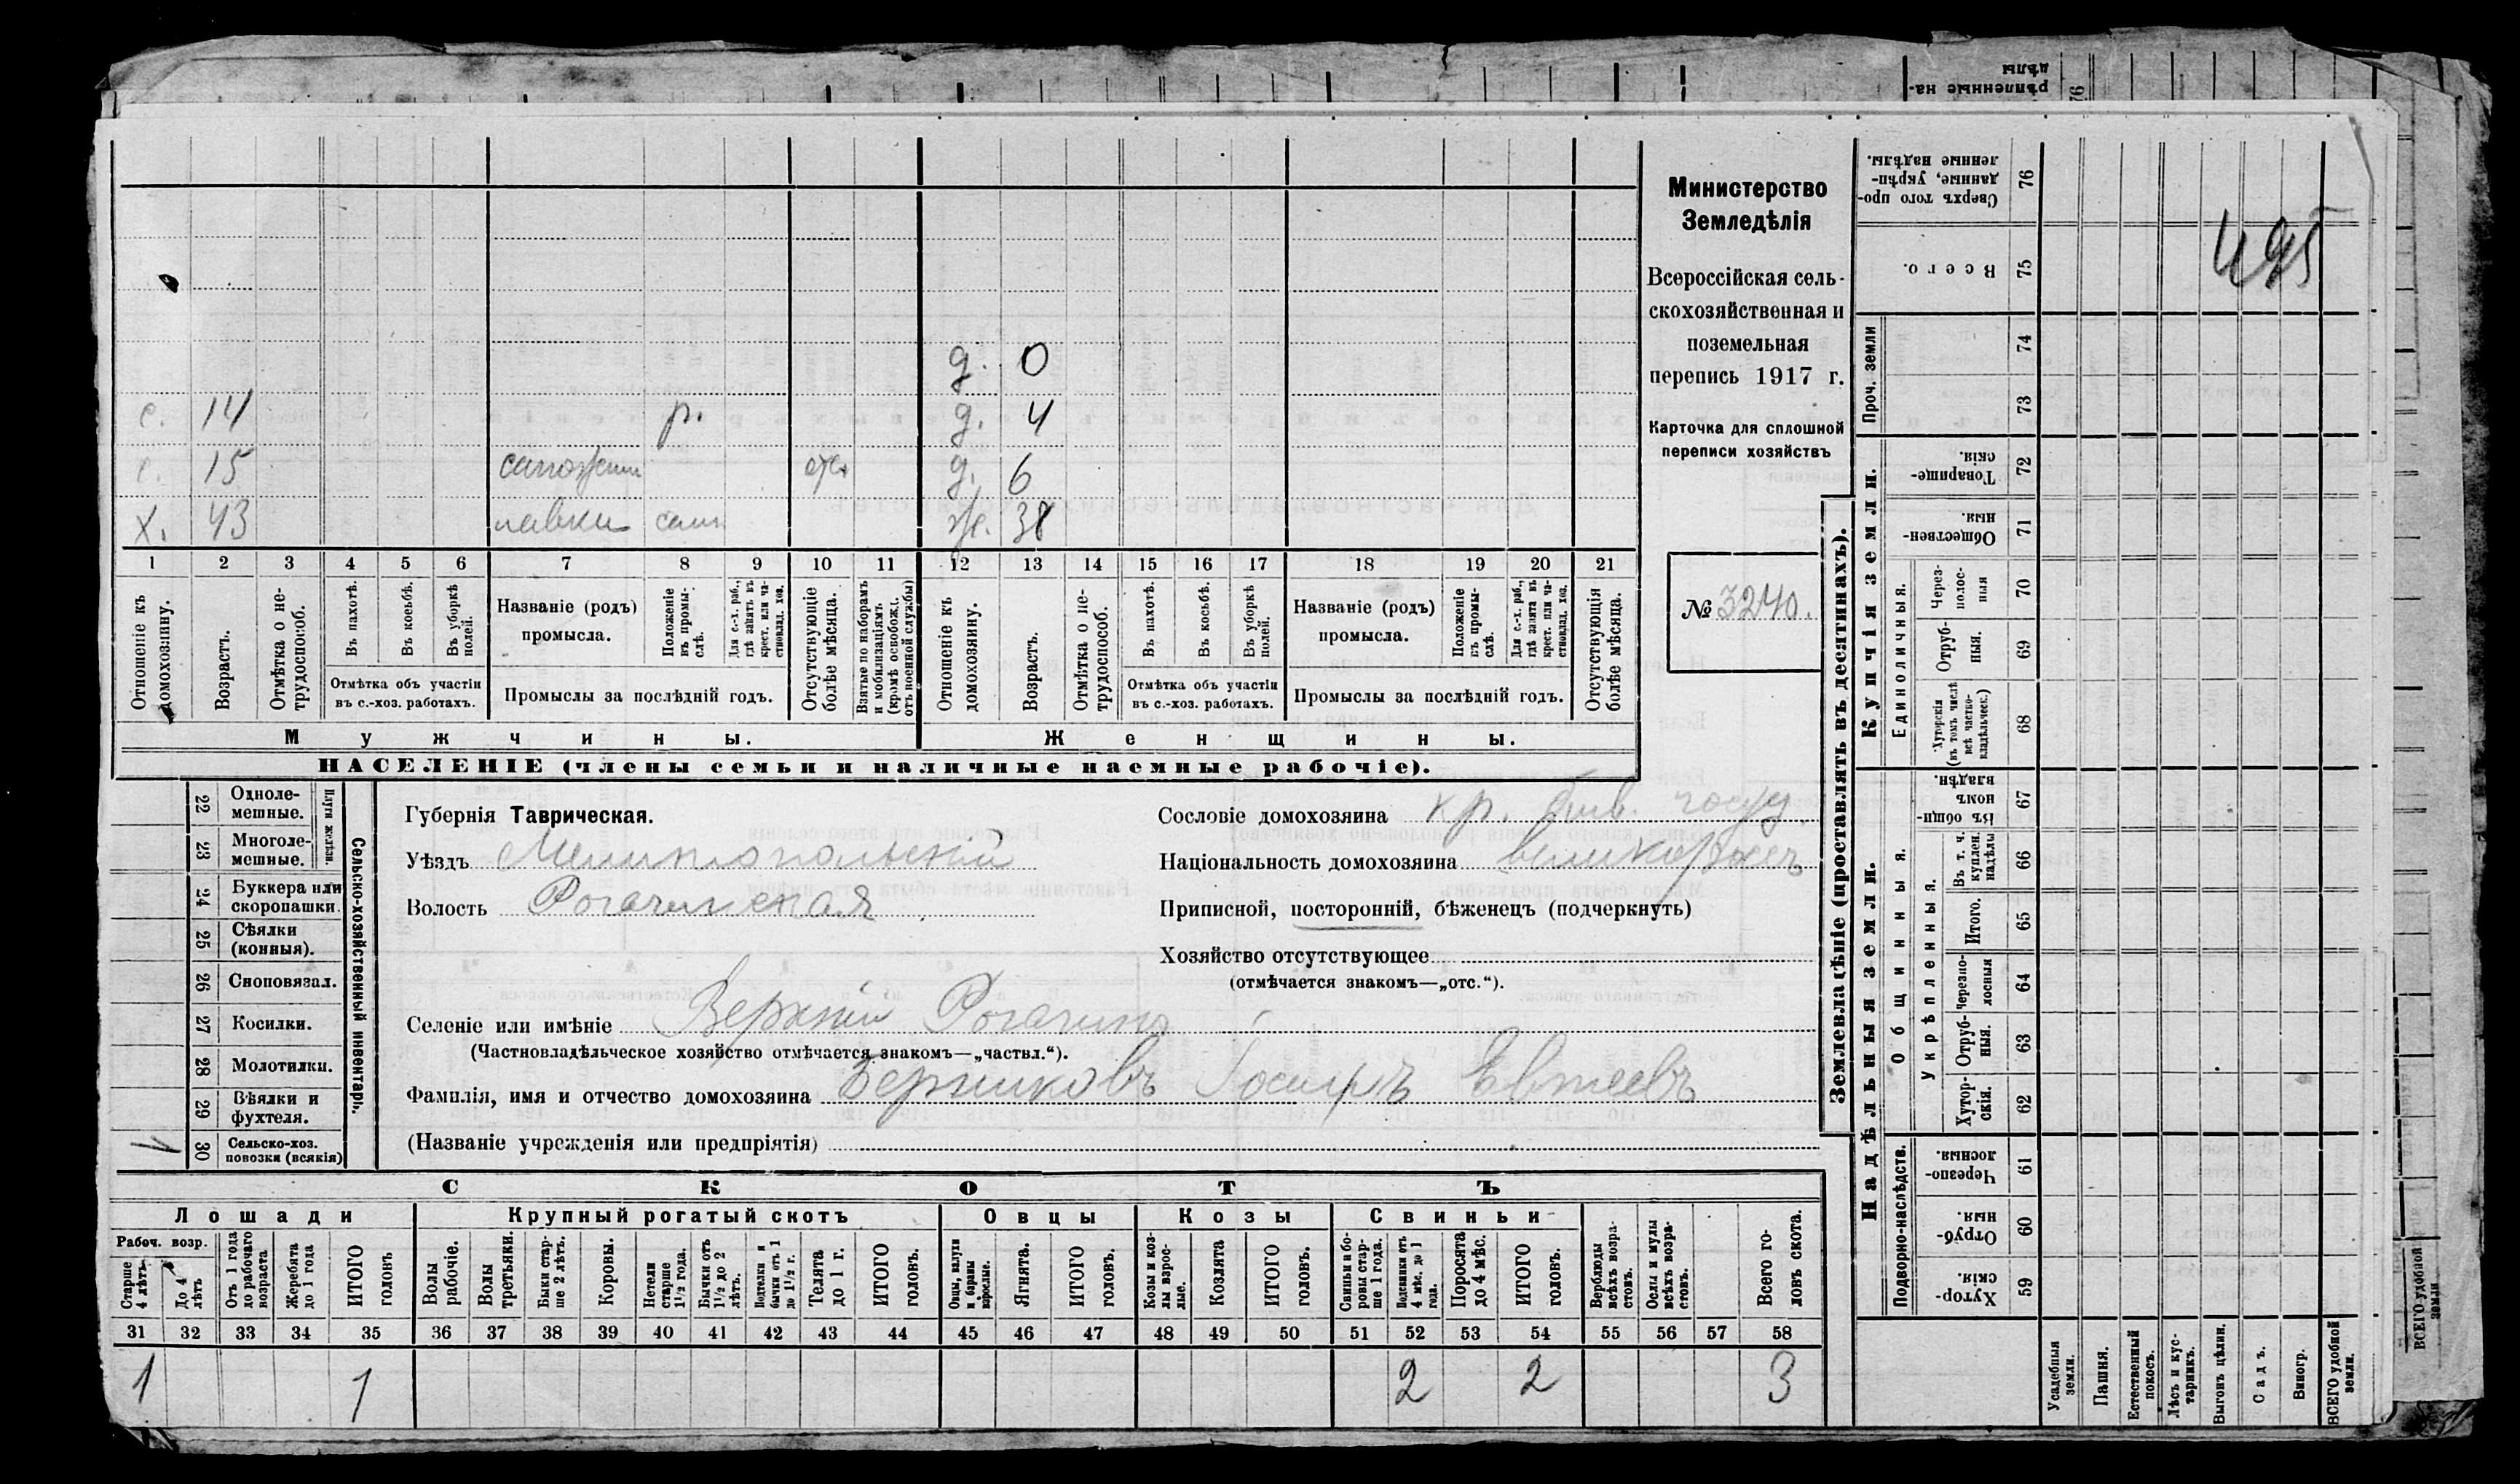 рѣпленные на-
дѣлы
76
495
с. 14 р. д. 0
д. 4
с. 15 сапожник отс. д. 6
х. 43 лавки сам ж. 38
1 2 3 4 5 6 7 8 9 10 11 12 13 14 15 16 17 18 19 20 21
Отношеніе къ домохозяину.
Возрастъ.
Отмѣтка о не-трудоспособ.
Въ пахотѣ.
Въ косьбѣ.
Въ уборкѣ полей.
Отмѣтка объ участіи въ с.-хоз. работахъ.
Названіе (родъ) промысла.
Положеніе въ промы-слѣ.
Для с.-х. раб., гдѣ занятъ въ крест. или ча-стновлад. хоз.
Промыслы за послѣдній годъ.
Отсутствующіе болѣе мѣсяца.
Взятые по наборамъ и мобилизаціямъ (кромѣ освобожд. отъ военной службы)
Отношеніе къ домохозяину.
Возрастъ.
Отмѣтка о не-трудоспособ.
Въ пахотѣ.
Въ косьбѣ.
Въ уборкѣ полей.
Отмѣтка объ участіи въ с.-хоз. работахъ.
Названіе (родъ) промысла.
Положеніе въ промы-слѣ.
Для с.-х. раб., гдѣ занята въ крест. или ча-стновлад. хоз.
Промыслы за послѣдній годъ.
Отсутствующія болѣе мѣсяца.
Мужчины.
Женщины.
НАСЕЛЕНІЕ (члены семьи и наличные наемные рабочіе).
Министерство
Земледѣлія
Всероссійская сель-
скохозяйственная и
поземельная
перепись 1917 г.
Карточка для сплошной
переписи хозяйствъ
№ 3240.
22 Одноле-мешные.
23 Многоле-мешные.
Плуги желѣзн.
24 Буккера или скоропашки.
25 Сѣялки (конныя).
26 Сноповязал.
27 Косилки.
28 Молотилки.
29 Вѣялки и фухтеля.
30 Сельско-хоз. повозки (всякія)
1
Сельско-хозяйственный инвентарь.
Губернія Таврическая.
Уѣздъ Мелитопольскій
Волость Рогачикская
Сословіе домохозяина кр. быв. госуд.
Національность домохозяина великороссъ
Приписной, посторонній, бѣженецъ (подчеркнуть)
Хозяйство отсутствующее
(отмѣчается знакомъ—„отс.“).
Селеніе или имѣніе Верхній Рогачикъ
(Частновладѣльческое хозяйство отмѣчается знакомъ—„частвл.“).
Фамилія, имя и отчество домохозяина Берниковъ Іосифъ Евтеевъ
(Названіе учрежденія или предпріятія)
СКОТЪ
Лошади
Крупный рогатый скотъ
Овцы
Козы
Свиньи
Рабоч. возр.
Старше 4 лѣтъ
До 4 лѣтъ
Отъ 1 года до рабочаго возраста
Жеребята до 1 года
ИТОГО головъ
Волы рабочіе.
Волы третьяки.
Быки стар-ше 2 лѣтъ.
Коровы.
Нетели старше 1½ года.
Бычки отъ 1½ до 2 лѣтъ.
Подтелки и бычки отъ 1 до 1½ г.
Телята до 1 г.
ИТОГО головъ.
Овцы, валухи и бараны взрослые.
Ягнята.
ИТОГО головъ.
Козы и коз-лы взрос-лые.
Козлята
ИТОГО головъ.
Свиньи и бо-ровы стар-ше 1 года.
Подсвинки отъ 4 мѣс. до 1 года.
Поросята до 4 мѣс.
ИТОГО головъ.
Верблюды всѣхъ возра-стовъ.
Ослы и мулы всѣхъ возра-стовъ.
Всего го-ловъ скота.
31 32 33 34 35 36 37 38 39 40 41 42 43 44 45 46 47 48 49 50 51 52 53 54 55 56 57 58
1 1 2 2 3
Землевладѣніе (проставлять въ десятинахъ).
Надѣльныя земли.
Купчія земли.
Проч. земли
Подворно-наслѣдств.
Общинныя.
Укрѣпленныя.
Единоличныя.
Сверхъ того про-данные, укрѣп-ленные надѣлы. 76
Всего. 75
74
73
Товарище-скія. 72
Обществен-ныя. 71
Через-полос-ныя 70
Отруб-ныя. 69
Хуторскія (въ томъ числѣ всѣ частно-владѣльческ.) 68
Въ общин-номъ владѣн. 67
Въ т. ч. куплен. надѣлы 66
Итого. 65
Черезпо-лосныя 64
Отруб-ныя. 63
Хутор-скія. 62
Черезпо-лосныя. 61
Отруб-ныя. 60
Хутор-скія. 59
Усадебныя земли.
Пашня.
Естественный покосъ.
Лѣсъ и кус-тарникъ.
Выгонъ цѣлин.
Садъ.
Виногр.
ВСЕГО удобной земли.
ВСЕГО удобной земли